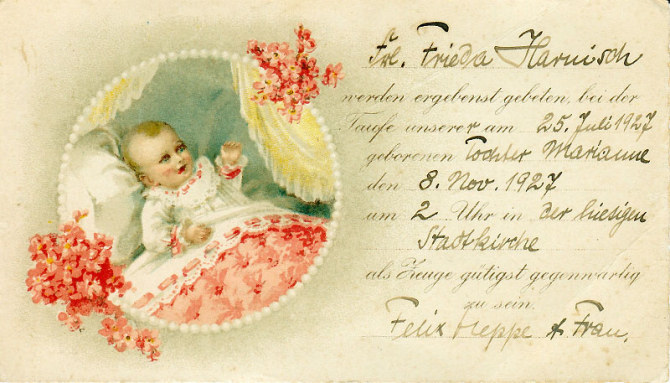 Frl. Frieda Harnisch
werden ergebenst gebeten, bei der
Taufe unserer am 25. Juli 1927
geborenen Tochter Marianne
den 8. Nov. 1927
um 2 Uhr in der hiesigen
Stadtkirche
als Zeuge gütigst gegenwärtig
zu sein.
Felix Heppe & Frau.